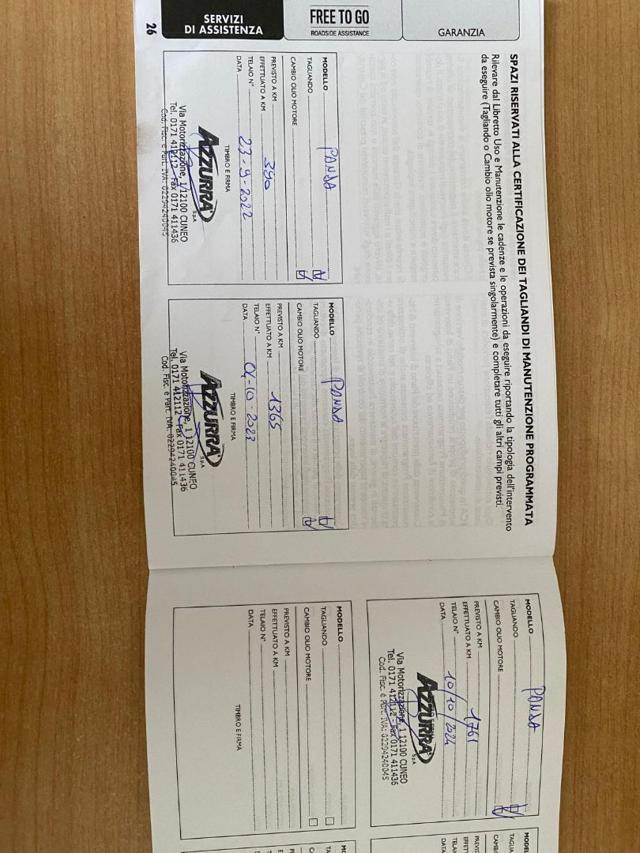 SERVIZI
DI ASSISTENZA
FREE TO GO
ROADSIDE ASSISTANCE
GARANZIA
26
SPAZI RISERVATI ALLA CERTIFICAZIONE DEI TAGLIANDI DI MANUTENZIONE PROGRAMMATA
Rilevare dal Libretto Uso e Manutenzione le cadenze e le operazioni da eseguire riportando la tipologia dell'intervento
da eseguire (Tagliando o Cambio olio motore se prevista singolarmente) e completare tutti gli altri campi previsti.
MODELLO PANDA
TAGLIANDO
CAMBIO OLIO MOTORE
PREVISTO A KM
EFFETTUATO A KM 390
TELAIO N°
DATA 23-9-2022
TIMBRO E FIRMA
AZZURRA SpA
Via Motorizzazione, 1 12100 CUNEO
Tel. 0171 412112 - Fax 0171 411436
Cod. Fisc. e Part. IVA: 02294240045
MODELLO PANDA
TAGLIANDO
CAMBIO OLIO MOTORE
PREVISTO A KM
EFFETTUATO A KM 1365
TELAIO N°
DATA 10 2023
TIMBRO E FIRMA
AZZURRA SpA
Via Motorizzazione, 1 12100 CUNEO
Tel. 0171 412112 - Fax 0171 411436
Cod. Fisc. e Part. IVA: 02294240045
MODELLO PANDA
TAGLIANDO
CAMBIO OLIO MOTORE
PREVISTO A KM
EFFETTUATO A KM 1761
TELAIO N°
DATA 10/10/2024
AZZURRA SpA
Via Motorizzazione, 1 12100 CUNEO
Tel. 0171 412112 - Fax 0171 411436
Cod. Fisc. e Part. IVA: 02294240045
MODELLO
TAGLIANDO
CAMBIO OLIO MOTORE
PREVISTO A KM
EFFETTUATO A KM
TELAIO N°
DATA
TIMBRO E FIRMA